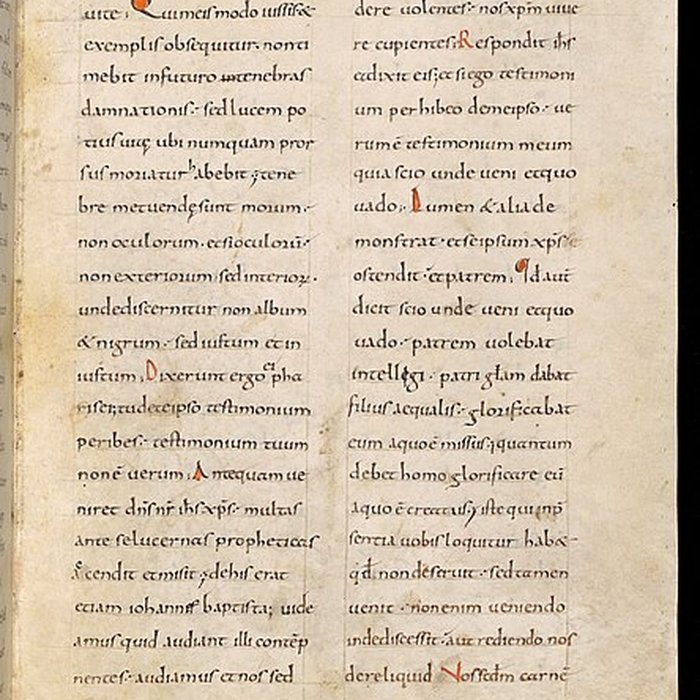 uite. Qui meis modo iussis &
exemplis obsequitur. non ti
mebit in futuro tenebras
damnationis. sed lucem po
tius uitę ubi numquam pror
sus moriatur habebit; tene
bre metuendę sunt morum.
non oculorum. et si oculorū.
non exteriorum sed interioꝝ.
unde discernitur non album
& nigrum. sed iustum et in
iustum. Dixerunt ergo ei pha
risei; tu de te ipso testimonium
peribes. testimonium tuum
non ē verum. Antequam ue
niret dn̄s nr̄ ih̄s xp̄s. multas
ante se lucernas propheticas
accendit et misit; de his erat
etiam iohannes baptista; uide
amus quid audiant illi contēp
nentes. audiamus et nos sed
dere uolentes. nos xp̄m uiue
re cupientes. Respondit ih̄s
et dixit eis; et si ego testimoni
um perhibeo de me ipso. ue
rum ē testimonium meum
quia scio unde ueni et quo
uado. Lumen & alia de
monstrat. et se ipsum xp̄s
ostendit. et patrem. Qd aut̄
dicit scio unde ueni et quo
uado. patrem uolebat
intellegi. patri gl̄am dabat
filius aequalis. glorificabat
eum a quo ē missus; quantum
debet homo glorificare eū
a quo ē creatus; iste qui in p̄
sentia uobis loquitur hab&
qd̄ non deseruit. sed tamen
uenit. non enim ueniendo
inde discessit. aut rediendo nos
dereliquid Nos sedm carnē